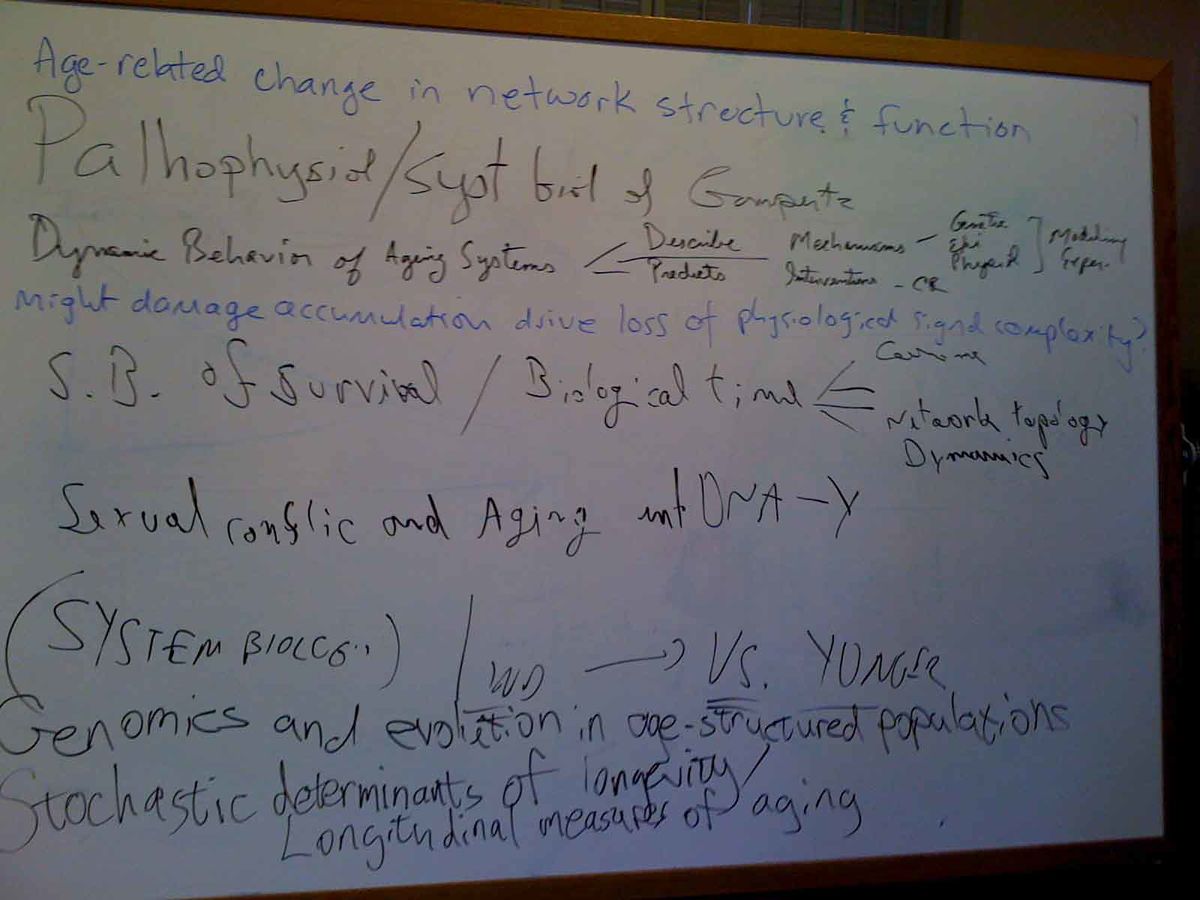 Age-related change in network structure & function
Palhophysiol/Syst biol of Gompertz
Dynamic Behavior of Aging Systems Describe Mechanisms - Genetic Epi Physiol ] Modeling Exper.
Predicts Interventions - CR
Might damage accumulation drive loss of physiological signal complexity?
S.B. of Survival / Biological time
Network topology
Dynamics
Sexual conflic and Aging mtDNA-Y
(SYSTEM BIOLOG..) / → VS. YOUNGER
Genomics and evolution in age-structured populations
Stochastic determinants of longevity/
Longitudinal measures of aging